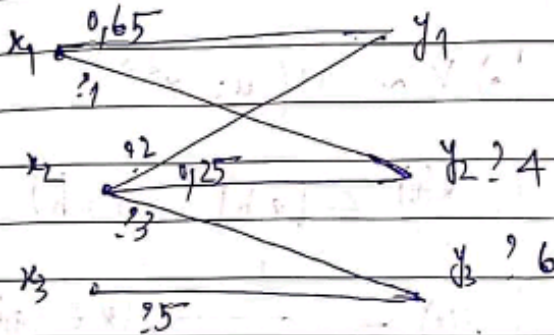 x1 0,65 y1
?1
x2 ?2 0,25 y2 ? 4
?3
x3 ?5 y3 ? 6